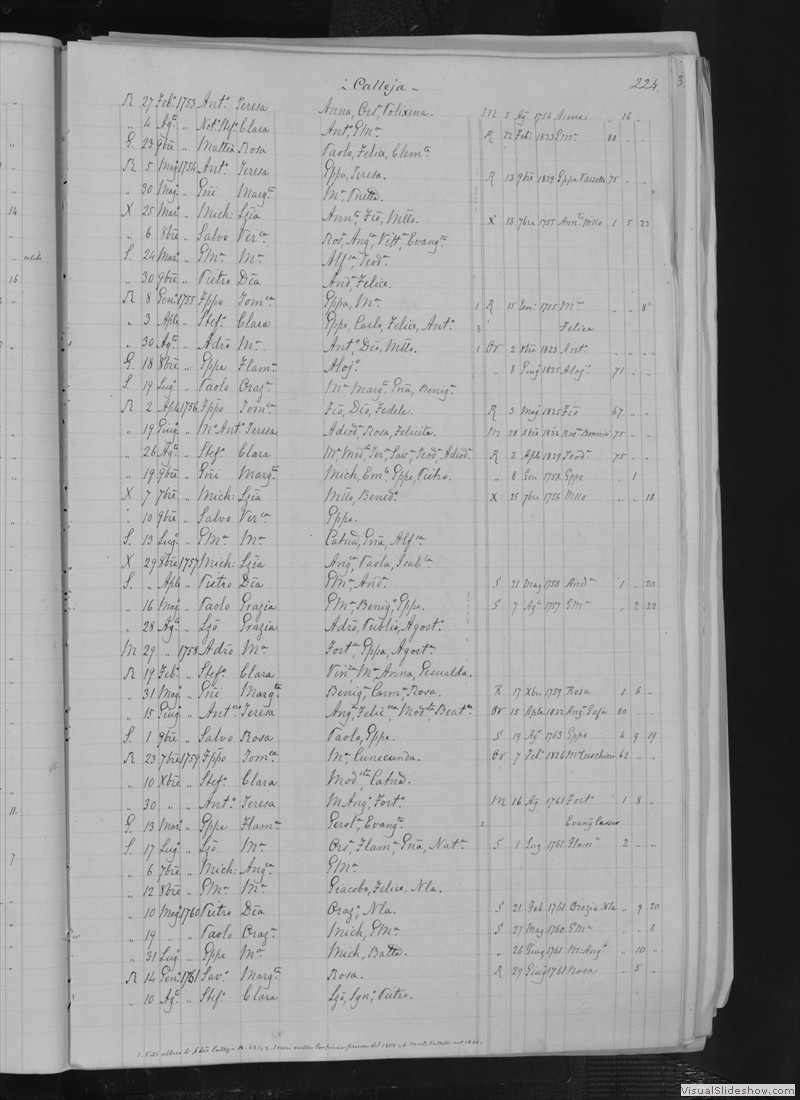 ~ Calleja ~ 224. 3
R 27 Feb. 1753 Ant.o Teresa Anna, Ors, Polixena. M 5 Ag. 1754 Anna „ 16 „
„ 4 Ag.to „ Not. Stef.o Clara Ant.o, GMa. R 22 Feb. 1833 GMa. 80 „ „
G. 23 9bre „ Mattia Rosa Paolo, Felice, Clem.te
R 5 Mag 1754 Ant.o Teresa Gppa, Teresa. R 13 9bre 1829 Gppa Vassallo 75 „ „
„ 30 Mag. „ Gni Marg.ta Ma. Pnetta.
14 X 25 Mar. „ Mich: Lzia Ann.ta, Fco, Mtlo. X 18 7bre 1755 Ann.ta Mtlo 1 5 23
„ 6 8bre „ Salvo Ver.ca Ros.a, Ang.a, Vitt.a, Evang.ta
S. 24 Mar. „ GMa Ma. Alf.a, Teod.a
16 „ 30 9bre „ Pietro Dca And.a, Felice.
R 8 Gen. 1755 Fppo Tom.ca Gppa, Ma. 1 R 15 Gen. 1755 Ma. „ „ 8
„ 3 Aple „ Stef.o Clara Gppe, Carlo, Felice, Ant.o 3 Felice
„ 30 Ag.to „ Adro Ma. Ant.o, Dco, Mtlo. 1 Or 2 8bre 1823 Ant.o „ „ „
G. 18 8bre „ Gppe Flam.a Aloj.o „ 8 Giug 1825 Aloj.o 71 „ „
S. 19 Lug. „ Paolo Graz.a Ma. Marg.a, Gna, Benig.a
R 2 Aple 1756 Fppo Tom.ca Fco, Dco, Fedele. R 3 Mag 1825 Fco 67 „ „
„ 19 Giug. „ Ma. Ant.o Teresa Adeod.a, Rosa, Felicita. M 28 Xbre 1832 Ros.a Bonnici 75 „ „
„ 26 Ag.to „ Stef.o Clara Ma. Mod.ta, Ter.a, Sav.a, Teod.a, Adeod.a R 2 Aple 1829 Teod.a 75 „ „
„ 19 9bre „ Gni Marg.ta Mich, Em.le, Gppe, Pietro. „ 8 Gen 1758 Gppe „ 1
X 7 7bre „ Mich: Lzia Mtlo, Bened.o X 25 7bre 1756 Mtlo „ „ 18
„ 10 9bre „ Salvo Ver.ca Gppa.
S. 13 Lug. „ GMa Ma. Catna, Gna, Alf.ca
X 29 8bre 1757 Mich: Lzia Ang.ca, Paola, Isab.la
S. „ Aple „ Pietro Dca GMa, And.a S 21 Mag 1758 And.a 1 „ 20
„ 16 Mag. „ Paolo Grazia GMa, Benig.o, Gppe. S 7 Ag. 1757 GMa „ 2 22
„ 28 Ag.to „ Lzo Grazia Adro, Publio, Agost.o
M 29 „ 1758 Adro Ma. Fort.a, Gppa, Agost.a
R 19 Feb. „ Stef.o Clara Vin.za, Ma. Anna, Gesualda.
„ 31 Mag. „ Gni Marg.ta Benig.a, Carm.a, Rosa. R 17 Xbre 1759 Rosa 1 6 „
„ 15 Giug. „ Ant.no Teresa Ang.a, Felic.na, Mod.sta, Beat.ce Or 15 Aple 1832 80 „ „
S. 1 9bre „ Salvo Rosa Paolo, Gppe. S 19 Ag. 1763 Gppe 4 9 19
R 23 7bre 1759 Fppo Tom.ca Ma. Cunecunda. Or 7 Feb. 1826 Ma. Cuschieri 62 „ „
„ 10 Xbre „ Stef.o Clara Mod.sta, Catna.
„ 30 „ „ Ant.o Teresa M Ang.o, Fort.a M 16 Ag. 1761 Fort.a 1 8 „
11. G. 13 Mar. „ Gppe Flam.a Gerol.a, Evang.ta 2
7 S. 17 Lug. „ Lzo Ma. Ors.a, Flam.a, Gna, Nat.a S 1 Lug 1761 Flam.a 2 „ „
„ 6 7bre „ Mich: Ang.ca GMa.
„ 12 8bre „ GMa Ma. Giacobo, Felice, Nla.
„ 10 Mag. 1760 Pietro Dca Graz.a, Nla. S 21 Feb 1761 Grazia Nla „ 9 20
„ 19 „ „ Paolo Graz.a Mich, GMa. S 27 Mag 1760 GMa „ „ 8
„ 31 Lug. „ Gppe Ma. Mich, Batta. „ 26 Giug 1761 M. Ang.o „ 10 „
R 14 Gen. 1761 Sav.o Marg.ta Rosa. R 29 Giug 1761 Rosa „ 5 „
„ 10 Ag.to „ Stef.o Clara Lzo, Ign.o, Pietro.
VisualSlideshow.com